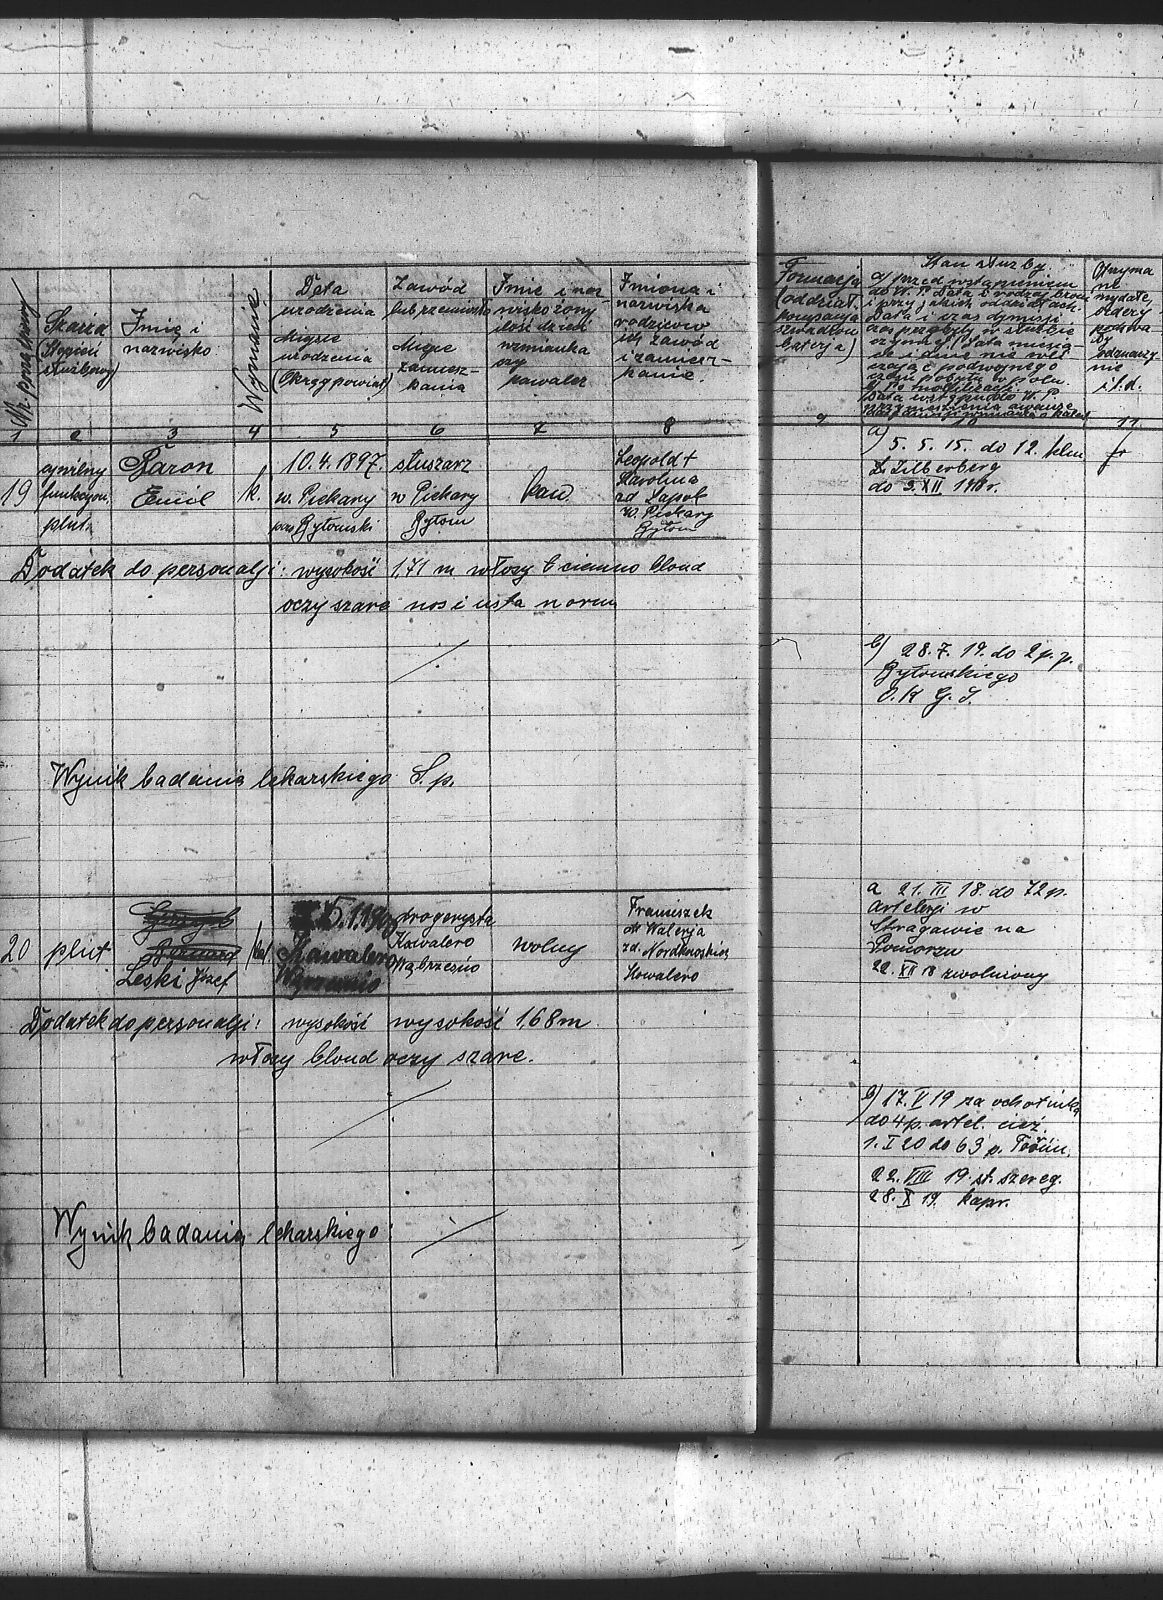 Nr. porządkowy
Szarża
Stopień
służbowy
Imię i
nazwisko
Wyznanie
Data
urodzenia
Miejsce
urodzenia
(Okręg powiat)
Zawód
lub rzemiosło
Miejsce
zamiesz-
kania
Imię i naz-
wisko żony
ilość dzieci
wzmianka
czy
kawaler
Imiona i
nazwiska
rodziców
ich zawód
i zamiesz-
kanie.
Formacja
(oddział,
kompania
szwadron
baterja)
Stan służby.
a) przed wstąpieniem
do W. P. Data i rodzaj broni
i przy jakich oddziałach.
Data i czas dymisji
czas przebyty w służbie
Otrzyma
ne
medale,
ordery
pochwa
ły
odznaczy-
nie
i t. d.
1 2 3 4 5 6 7 8 9 10 11
19
cywilny
funkcyon.
plut.
Baron
Emil
k.
10.4.1897.
w. Piekary
pow Bytomski
słuszarz
w Piekary
Bytom
kaw
Leopold +
Karolina
zd Sapok
w. Piekary
Bytom
a) 5. 5. 15. do 12. komp
L. Zilberberg
do 3. XII 1918r.
Dodatek do personalji: wysokość 1,71 m włosy ciemno blond
oczy szare nos i usta norm
b) 28. 7. 19. do 2 p. p.
Bytomskiego
O. K G. S.
Wynik badania lekarskiego S. p.
20
plut
Leski Józef
kat.
5.1.1903
Kawalero
Wąbrzeźno
drogerysta
Kowalero
Wąbrzeźno
wolny
Franciszek
Walerja
zd. Nordkowskich
Kowalero
a 21. III 18. do 72 p.
Artelerji w
Strągawie na
Pomorzu
22. XII 18 zwolniony
Dodatek do personalji: wysokość wysokość 1,68 m
włosy blond oczy szare.
b) 17. V 19 za ochotnika
do 4 p. artel. cięż.
1. I 20 do 63 p. Toruń.
22. VIII 19. st. szereg.
28. X 19. kapr.
Wynik badania lekarskiego: